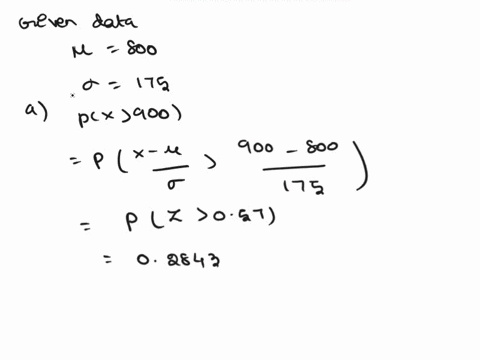 Given data
μ = 800
σ = 175
a) P(X > 900)
= P ( (x - μ)/σ > (900 - 800)/175 )
= P (Z > 0.57)
= 0.2843